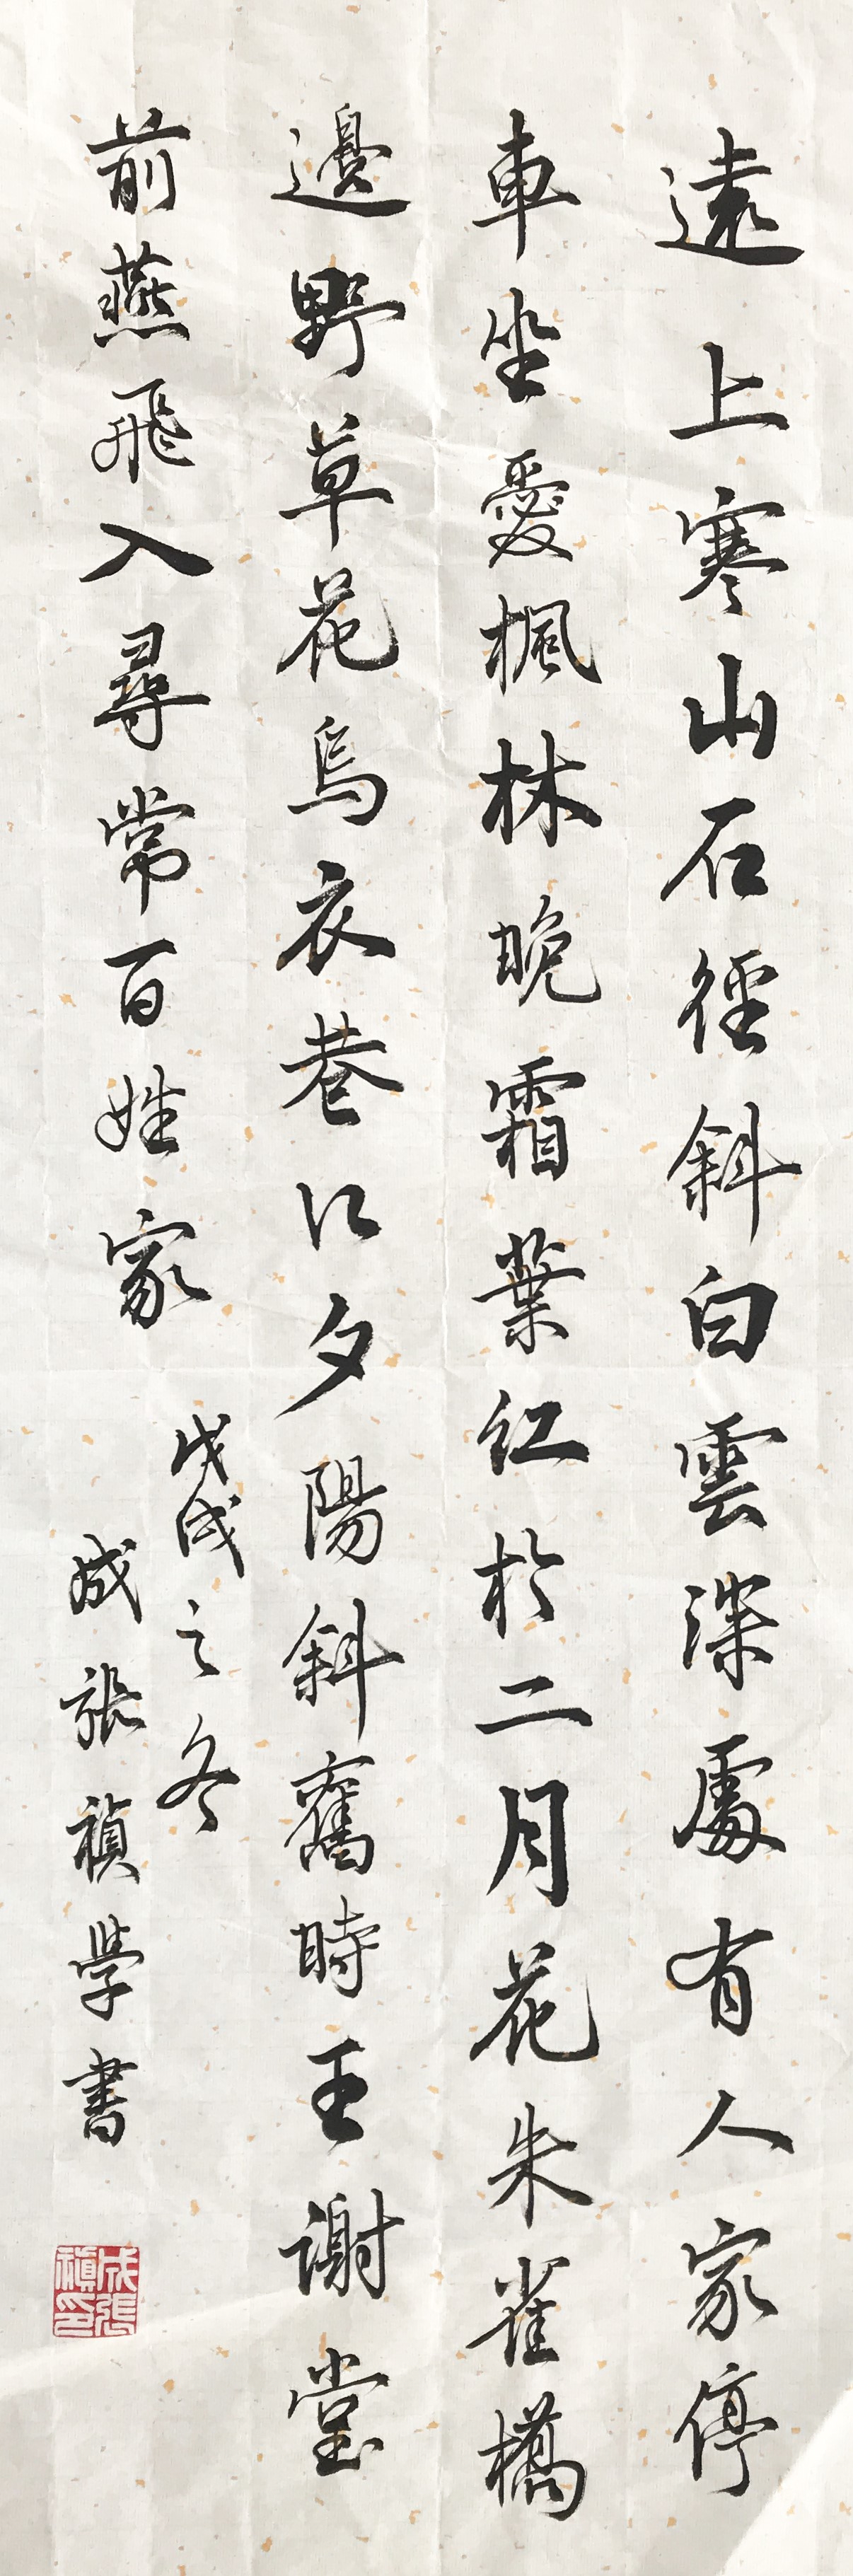 遠上寒山石徑斜白雲深處有人家停
車坐愛楓林晚霜葉紅於二月花朱雀橋
邊野草花烏衣巷口夕陽斜舊時王謝堂
前燕飛入尋常百姓家
戊戌之冬
成張禎學書
成張禎印